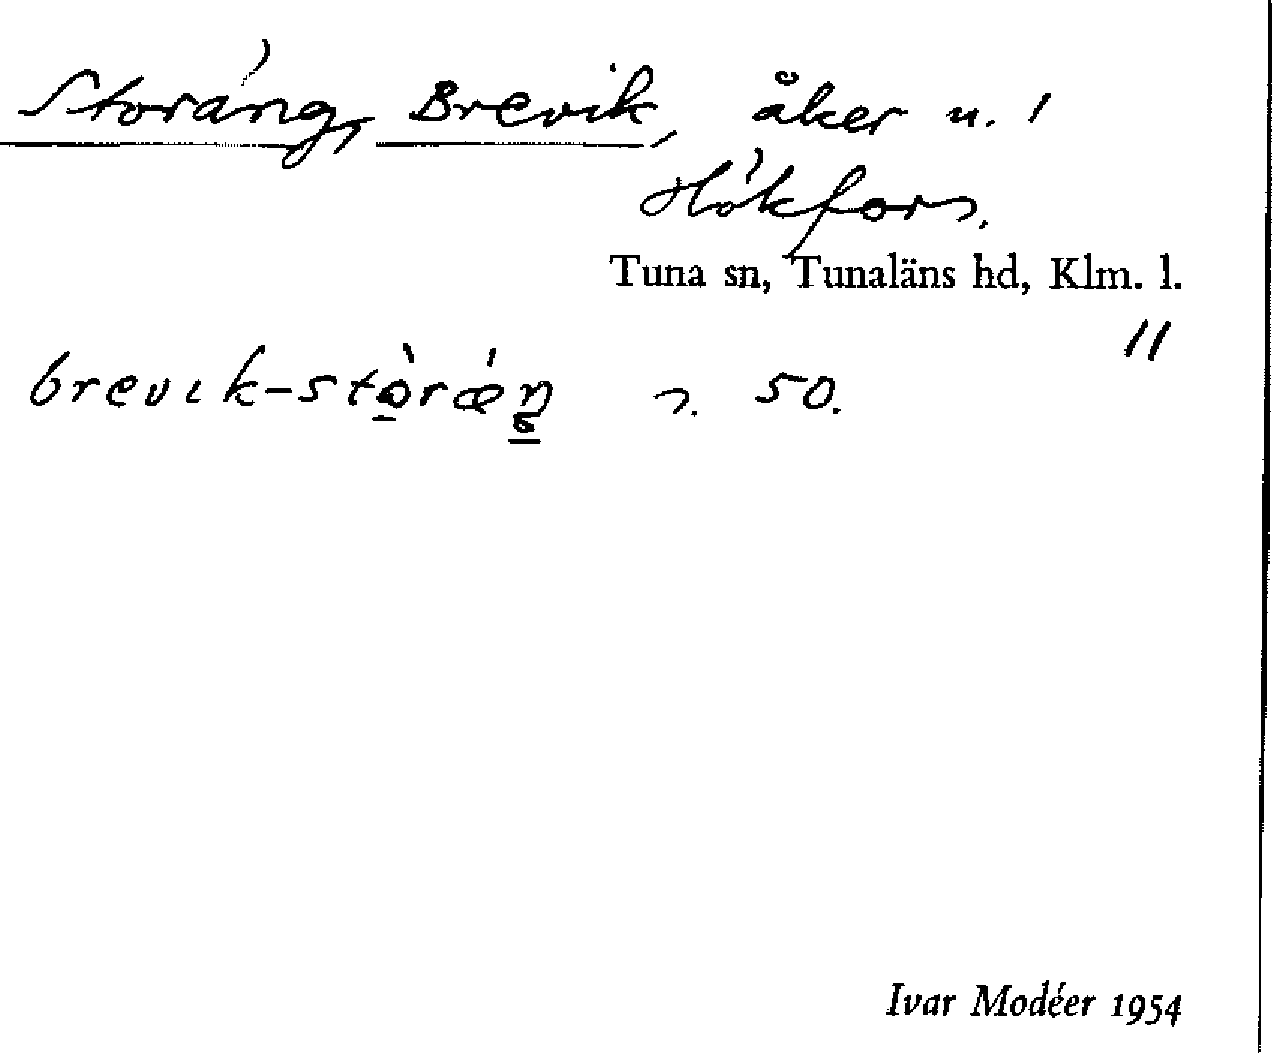 Storäng, Brevik, åker u. 1
Hökfors.
Tuna sn, Tunaläns hd, Klm. l.
11
brevık-stò̱rǽŋ s. 50.
Ivar Modéer 1954